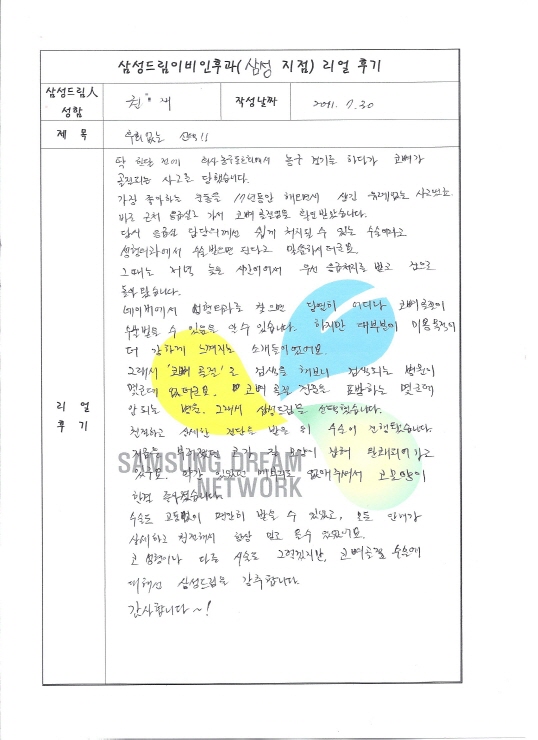 삼성드림이비인후과(삼성 지점) 리얼 후기
삼성드림人 성함
권 재
작성날짜
2011. 7. 30
제 목
후회없는 선택!!
리 얼 후 기
딱 한달 전에 회사농구동호회에서 농구 경기를 하다가 코뼈가
골절되는 사고를 당했습니다.
가장 좋아하는 운동을 10년동안 해오면서 생긴 유례없는 사고였죠.
바로 근처 응급실로 가서 코뼈 골절임을 확인 받았습니다.
당시 응급실 담당의께선 쉽게 처치될 수 있는 수술이라고
성형외과에서 수술 받으면 된다고 말씀하시더군요.
그 때는 저녁 늦은 시간이어서 우선 응급처치를 받고 집으로
돌아 왔습니다.
네이버에서 성형외과로 찾으면 당연히 어디나 코뼈골절이
수술받을 수 있음을 알 수 있습니다. 하지만 대부분이 미용목적이
더 강하게 느껴지는 소개들이었어요.
그래서 '코뼈 골절'로 검색을 해보니 검색되는 병원이
몇군데 있더군요. 코뼈 골절 전문을 표방하는 몇군데
안되는 병원. 그래서 삼성드림을 선택했습니다.
친절하고 상세한 진단을 받은 뒤 수술이 진행되었습니다.
지금은 부러졌던 코가 잘 모양이 잡혀 완쾌되어가고
있구요. 약간 있었던 매부리도 없애주셔서 코모양이
한결 좋아졌습니다.
수술도 고통없이 편안히 받을 수 있었고, 모든 안내가
상세하고 친절해서 항상 믿고 올수 있었어요.
코 성형이나 다른 시술도 그렇겠지만, 코뼈골절 수술에
대해선 삼성드림을 강추합니다.
감사합니다~!
SAMSUNG DREAM
NETWORK